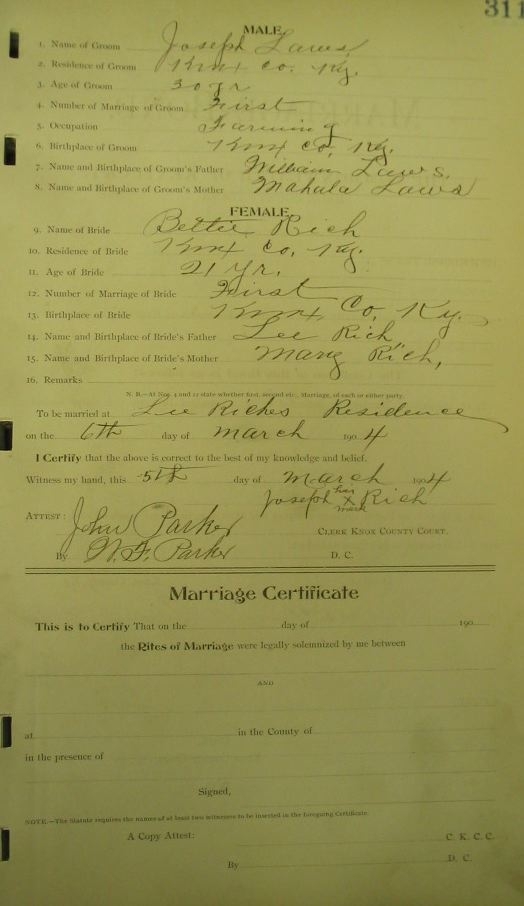 311
MALE
1. Name of Groom Joseph Laws
2. Residence of Groom Knox Co. Ky.
3. Age of Groom 30 yr
4. Number of Marriage of Groom First
5. Occupation Farming
6. Birthplace of Groom Knox Co, Ky.
7. Name and Birthplace of Groom's Father William Laws.
8. Name and Birthplace of Groom's Mother Mahala Laws
FEMALE
9. Name of Bride Bettie Rich
10. Residence of Bride Knox Co, Ky.
11. Age of Bride 21 Yr.
12. Number of Marriage of Bride First
13. Birthplace of Bride Knox Co, Ky.
14. Name and Birthplace of Bride's Father Lee Rich
15. Name and Birthplace of Bride's Mother Mary Rich,
16. Remarks
N. B.—At Nos. 4 and 12 state whether first, second etc., Marriage, of each or either party.
To be married at Lee Riches Residence
on the 6th day of March 1904
I Certify that the above is correct to the best of my knowledge and belief.
Witness my hand, this 5th day of March 1904
Joseph his X mark Rich
ATTEST: John Parker CLERK KNOX COUNTY COURT.
By N. F. Parker D. C.
Marriage Certificate
This is to Certify That on the day of 190
the Rites of Marriage were legally solemnized by me between
AND
at in the County of
in the presence of
Signed,
NOTE.—The Statute requires the names of at least two witnesses to be inserted in the foregoing Certificate.
A Copy Attest: C. K. C. C.
By D. C.